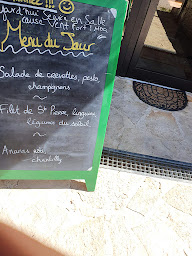 jourd'hui Service en Salle
cause Vent Fort
Menu du Jour
Salade de crevettes, pesto,
champignons
Filet de St Pierre, linguine
légumes du soleil
Ananas rôti,
chantilly